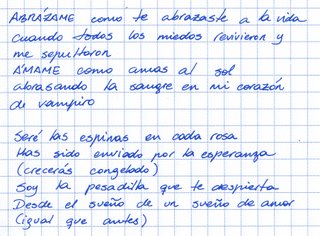 ABRÁZAME como te abrazaste a la vida
cuando todos los miedos revivieron y
me sepultaron
ÁMAME como amas al sol
abrasando la sangre en mi corazón
de vampiro
Seré las espinas en cada rosa
Has sido enviado por la esperanza
(crecerás congelado)
Soy la pesadilla que te despierta
Desde el sueño de un sueño de amor
(igual que antes)